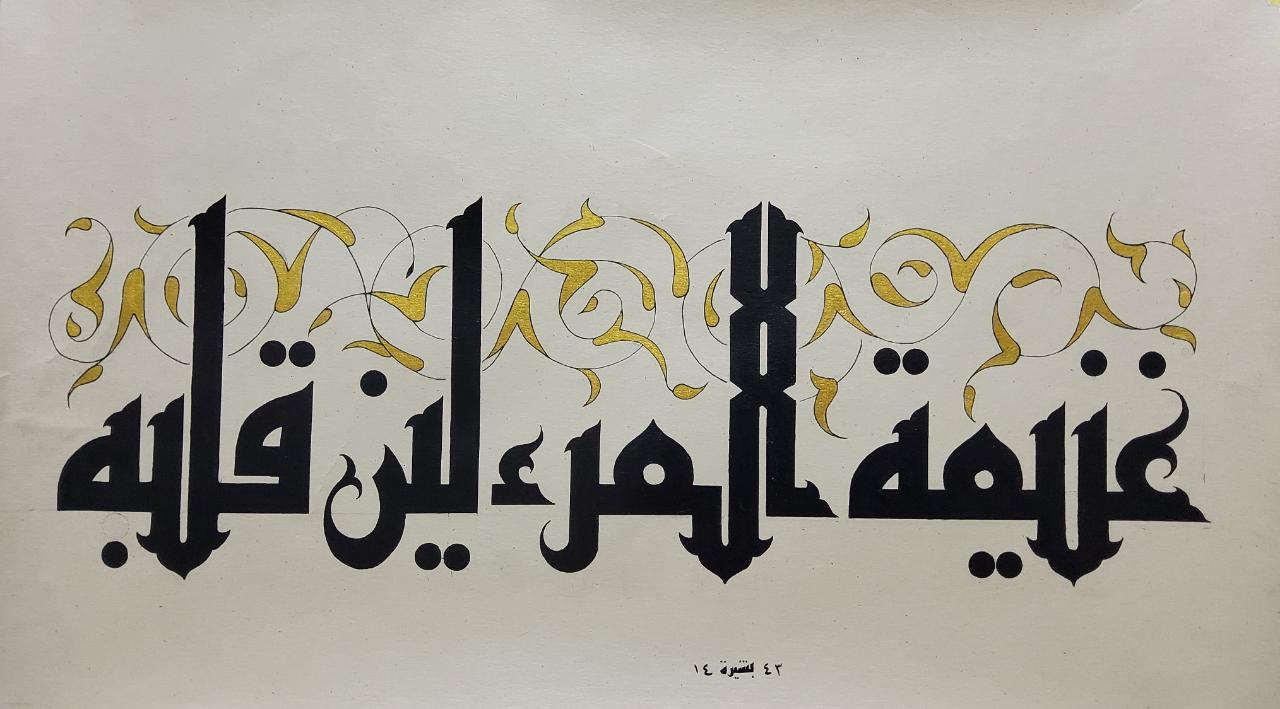 غنيمة المرء لين قلبه
١٤ بشيرة ٤٣